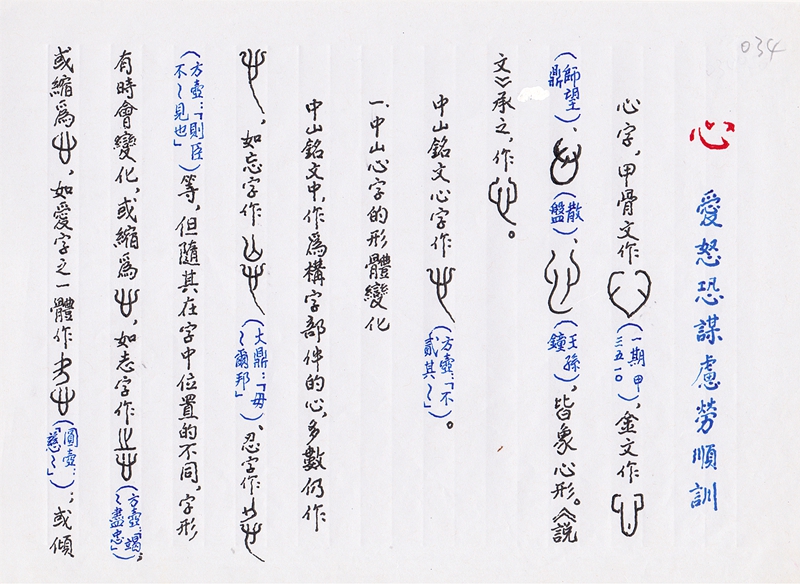 034
心 愛怒恐謀慮勞順訓
心字，甲骨文作（一期 甲三五一〇），金文作
（師望鼎）、（散盤）、（王孫鐘），皆象心形。《說
文》承之，作。
中山銘文心字作（方壺：「不貳其～」）。
一.中山心字的形體變化
中山銘文中，作爲構字部件的心，多數仍作
，如忘字作（大鼎：「毋～爾邦」）、忍字作
（方壺：「則臣不～見也」）等，但隨其在字中位置的不同，字形
有時會變化，或縮爲，如志字作（方壺：「竭～盡忠」）；
或縮爲，如愛字之一體作（圓壺：「慈～」）；或傾